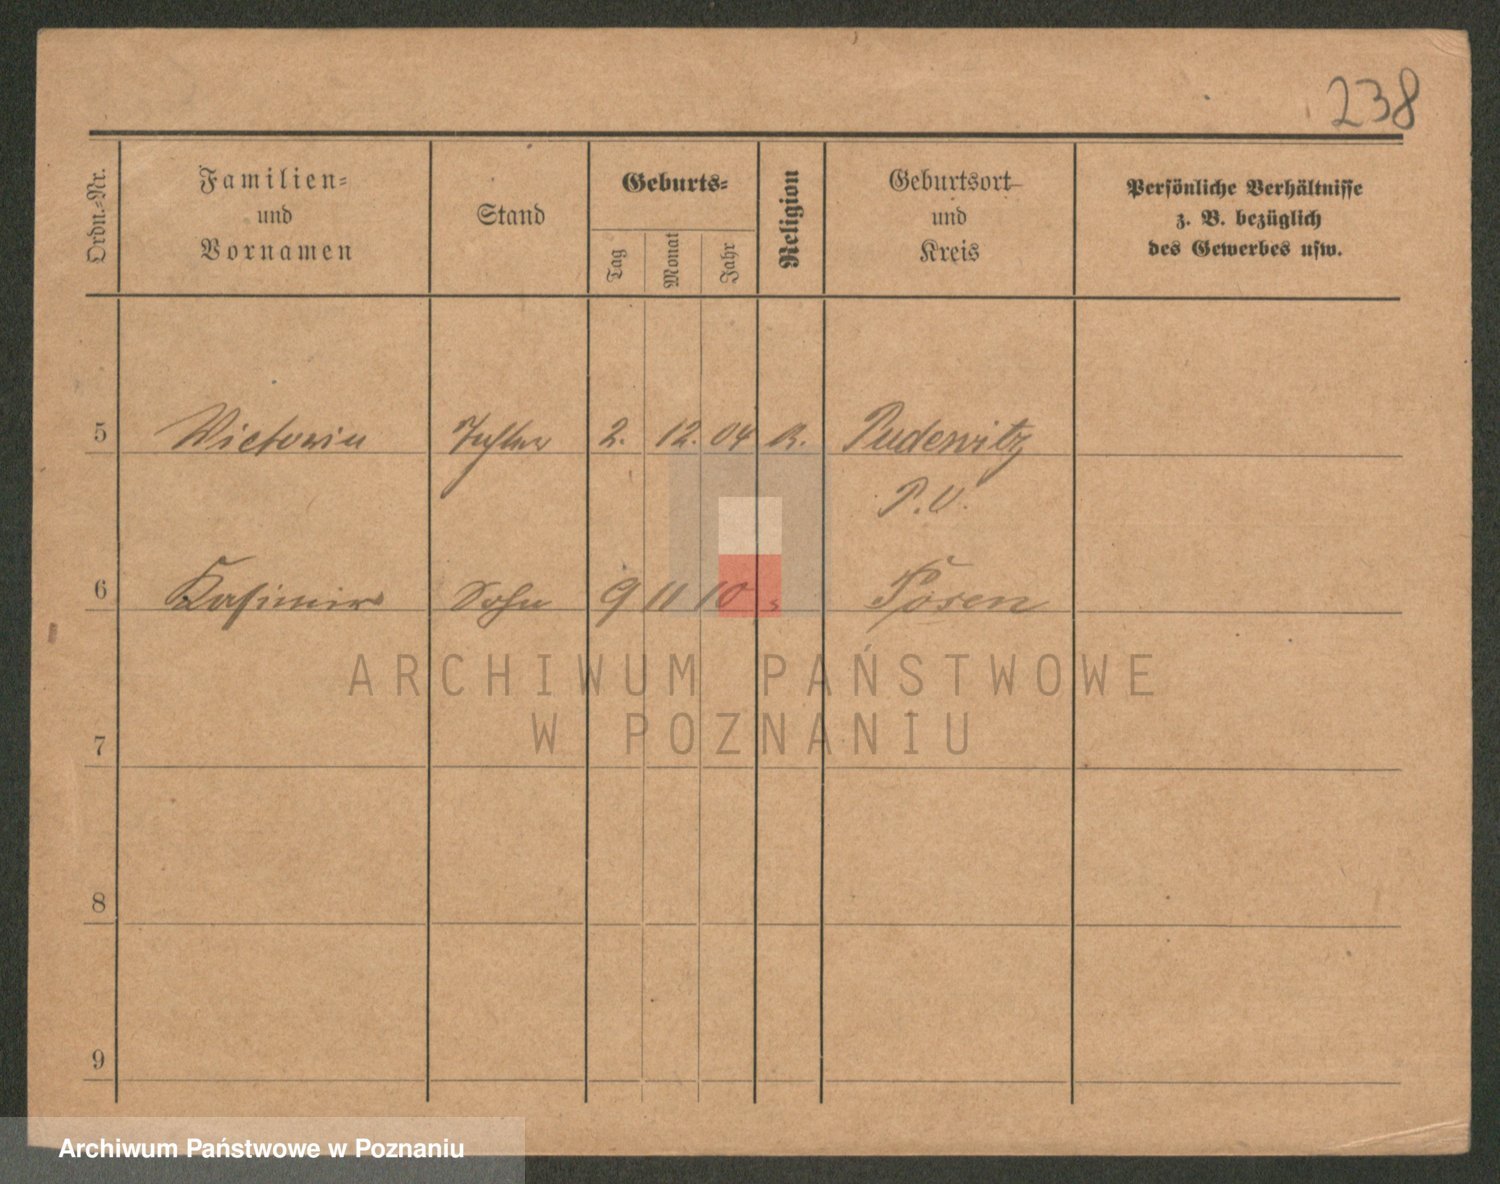 238
Ordn.-Nr.
Familien-
und
Vornamen
Stand
Geburts-
Tag
Monat
Jahr
Religion
Geburtsort
und
Kreis
Persönliche Verhältnisse
z. B. bezüglich
des Gewerbes usw.
5 Victoria Tochter 2. 12. 04 R. Pudewitz
P.O.
6 Kasimir Sohn 9 11 10 " Posen
ARCHIWUM PAŃSTWOWE
W POZNANIU
7
8
9
Archiwum Państwowe w Poznaniu